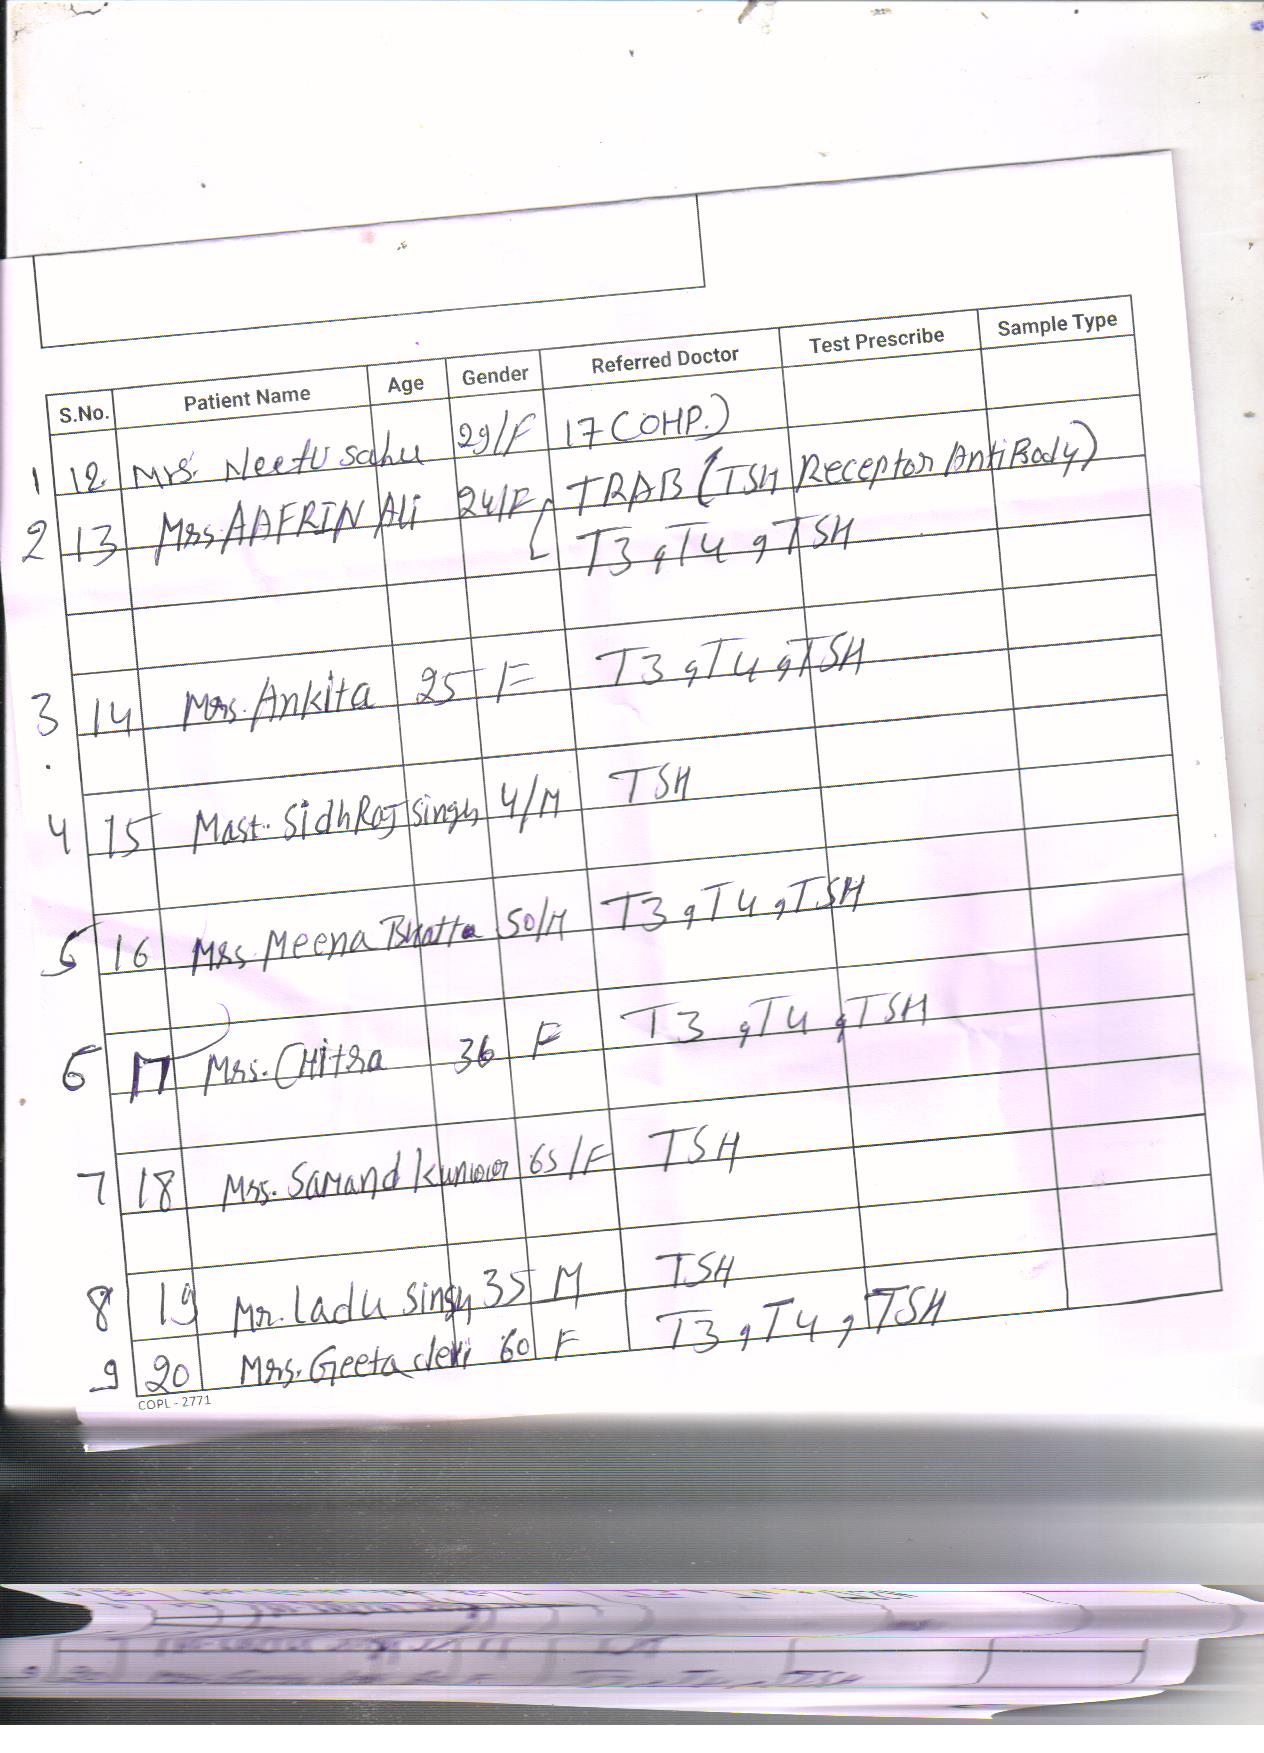 S.No. Patient Name Age Gender Referred Doctor Test Prescribe Sample Type
1 12. Mrs. Neetu sahu 29/F 17 (OHP.)
2 13 Mrs AAFRIN Ali 24/F TRAB (TSH Receptor AntiBody)
T3, T4, TSH
3 14 Mrs. Ankita 25 F T3, T4, TSH
4 15 Mast. Sidh Raj Singh 4/M TSH
5 16 Mrs. Meena Bhatta 50/M T3, T4, TSH
6 17 Mrs. CHitra 36 F T3, T4, TSH
7 18 Mrs. Samand Kunwar 65/F TSH
8 19 Mr. ladu singh 35 M TSH
9 20 Mrs. Geeta devi 60 F T3, T4, TSH
COPL - 2771